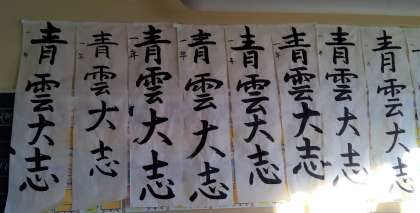 青雲大志
青雲大志
青雲大志
青雲大志
青雲大志
青雲大志
青雲大志
青雲大志